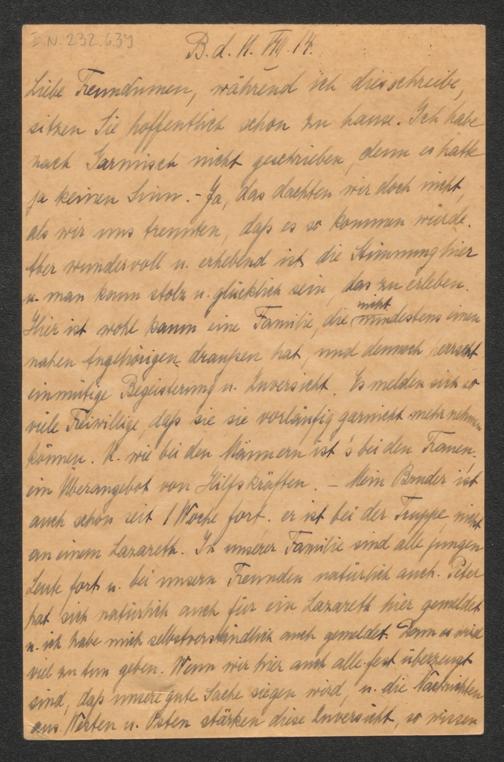 I.N. 232.639
B. d. 11. VIII. 14.
Liebe Freundinnen, während ich dies schreibe,
sitzen Sie hoffentlich schon zu hause. Ich habe
nach Garmisch nicht geschrieben, denn es hatte
ja keinen Sinn. - Ja, das dachten wir doch nicht,
als wir uns trennten, daß es so kommen würde.
Aber wundervoll u. erhebend ist die Stimmung hier
u. man kann stolz u. glücklich sein, das zu erleben.
Hier ist wohl kaum eine Familie, die nicht mindestens einen
nahen Angehörigen draußen hat, und dennoch herrscht
einmütige Begeisterung u. Zuversicht. Es melden sich so
viele Freiwillige, daß sie sie vorläufig garnicht mehr nehmen
können. U. wie bei den Männern ist's bei den Frauen.
ein Überangebot von Hilfskräften. - Mein Bruder ist
auch schon seit 1 Woche fort. er ist bei der Truppe nicht
an einem Lazareth. In unserer Familie sind alle jungen
Leute fort u. bei unsern Freunden natürlich auch. Peter
hat sich natürlich auch für ein Lazareth hier gemeldet
u. ich habe mich selbstverständlich auch gemeldet. Denn es wird
viel zu tun geben. Wenn wir hier auch alle fest überzeugt
sind, daß unsere gute Sache siegen wird, u. die Nachrichten
aus Westen u. Osten stärken diese Zuversicht, so wissen